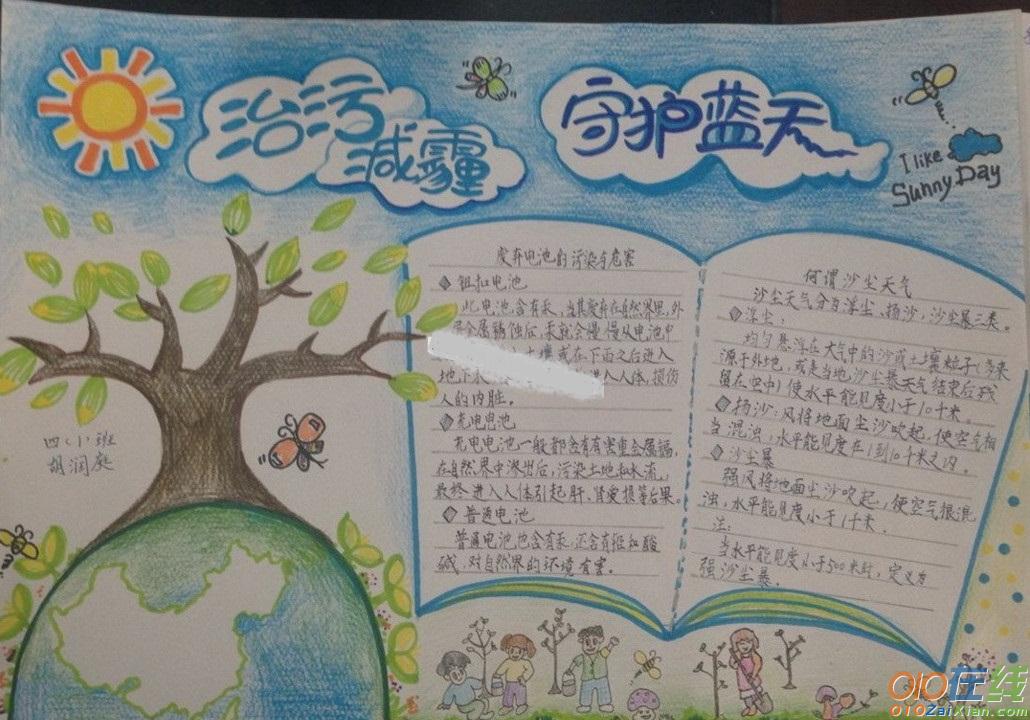 治污
减霾
守护蓝天
I like
Sunny Day
废弃电池的污染与危害
钮扣电池
此电池含有汞，当其废弃在自然界里，外
金属锈蚀后，汞就会慢慢从电池中
土壤或在下雨之后进入
地下水
进入人体，损伤
人的内脏。
充电电池
充电电池一般都含有害重金属镉，
在自然界中渗出后，污染土地和水流，
最终进入人体引起肝、肾受损等后果。
普通电池
普通电池也含有汞，还含有铅和酸
碱，对自然界的环境有害。
何谓沙尘天气
沙尘天气分为浮尘、扬沙，沙尘暴三类。
浮尘：
均匀悬浮在大气中的沙或土壤粒子（多来
源于外地，或是当地沙尘暴天气结束后残
留在空中）使水平能见度小于10千米。
扬沙：风将地面尘沙吹起，使空气相
当混浊，水平能见度在1到10千米之内。
沙尘暴
强风将地面尘沙吹起，使空气很混
浊，水平能见度小于1千米。
注：
当水平能见度小于500米时，定义为
强沙尘暴。
四（1）班
胡润庭
010在线
010ZaiXian.com